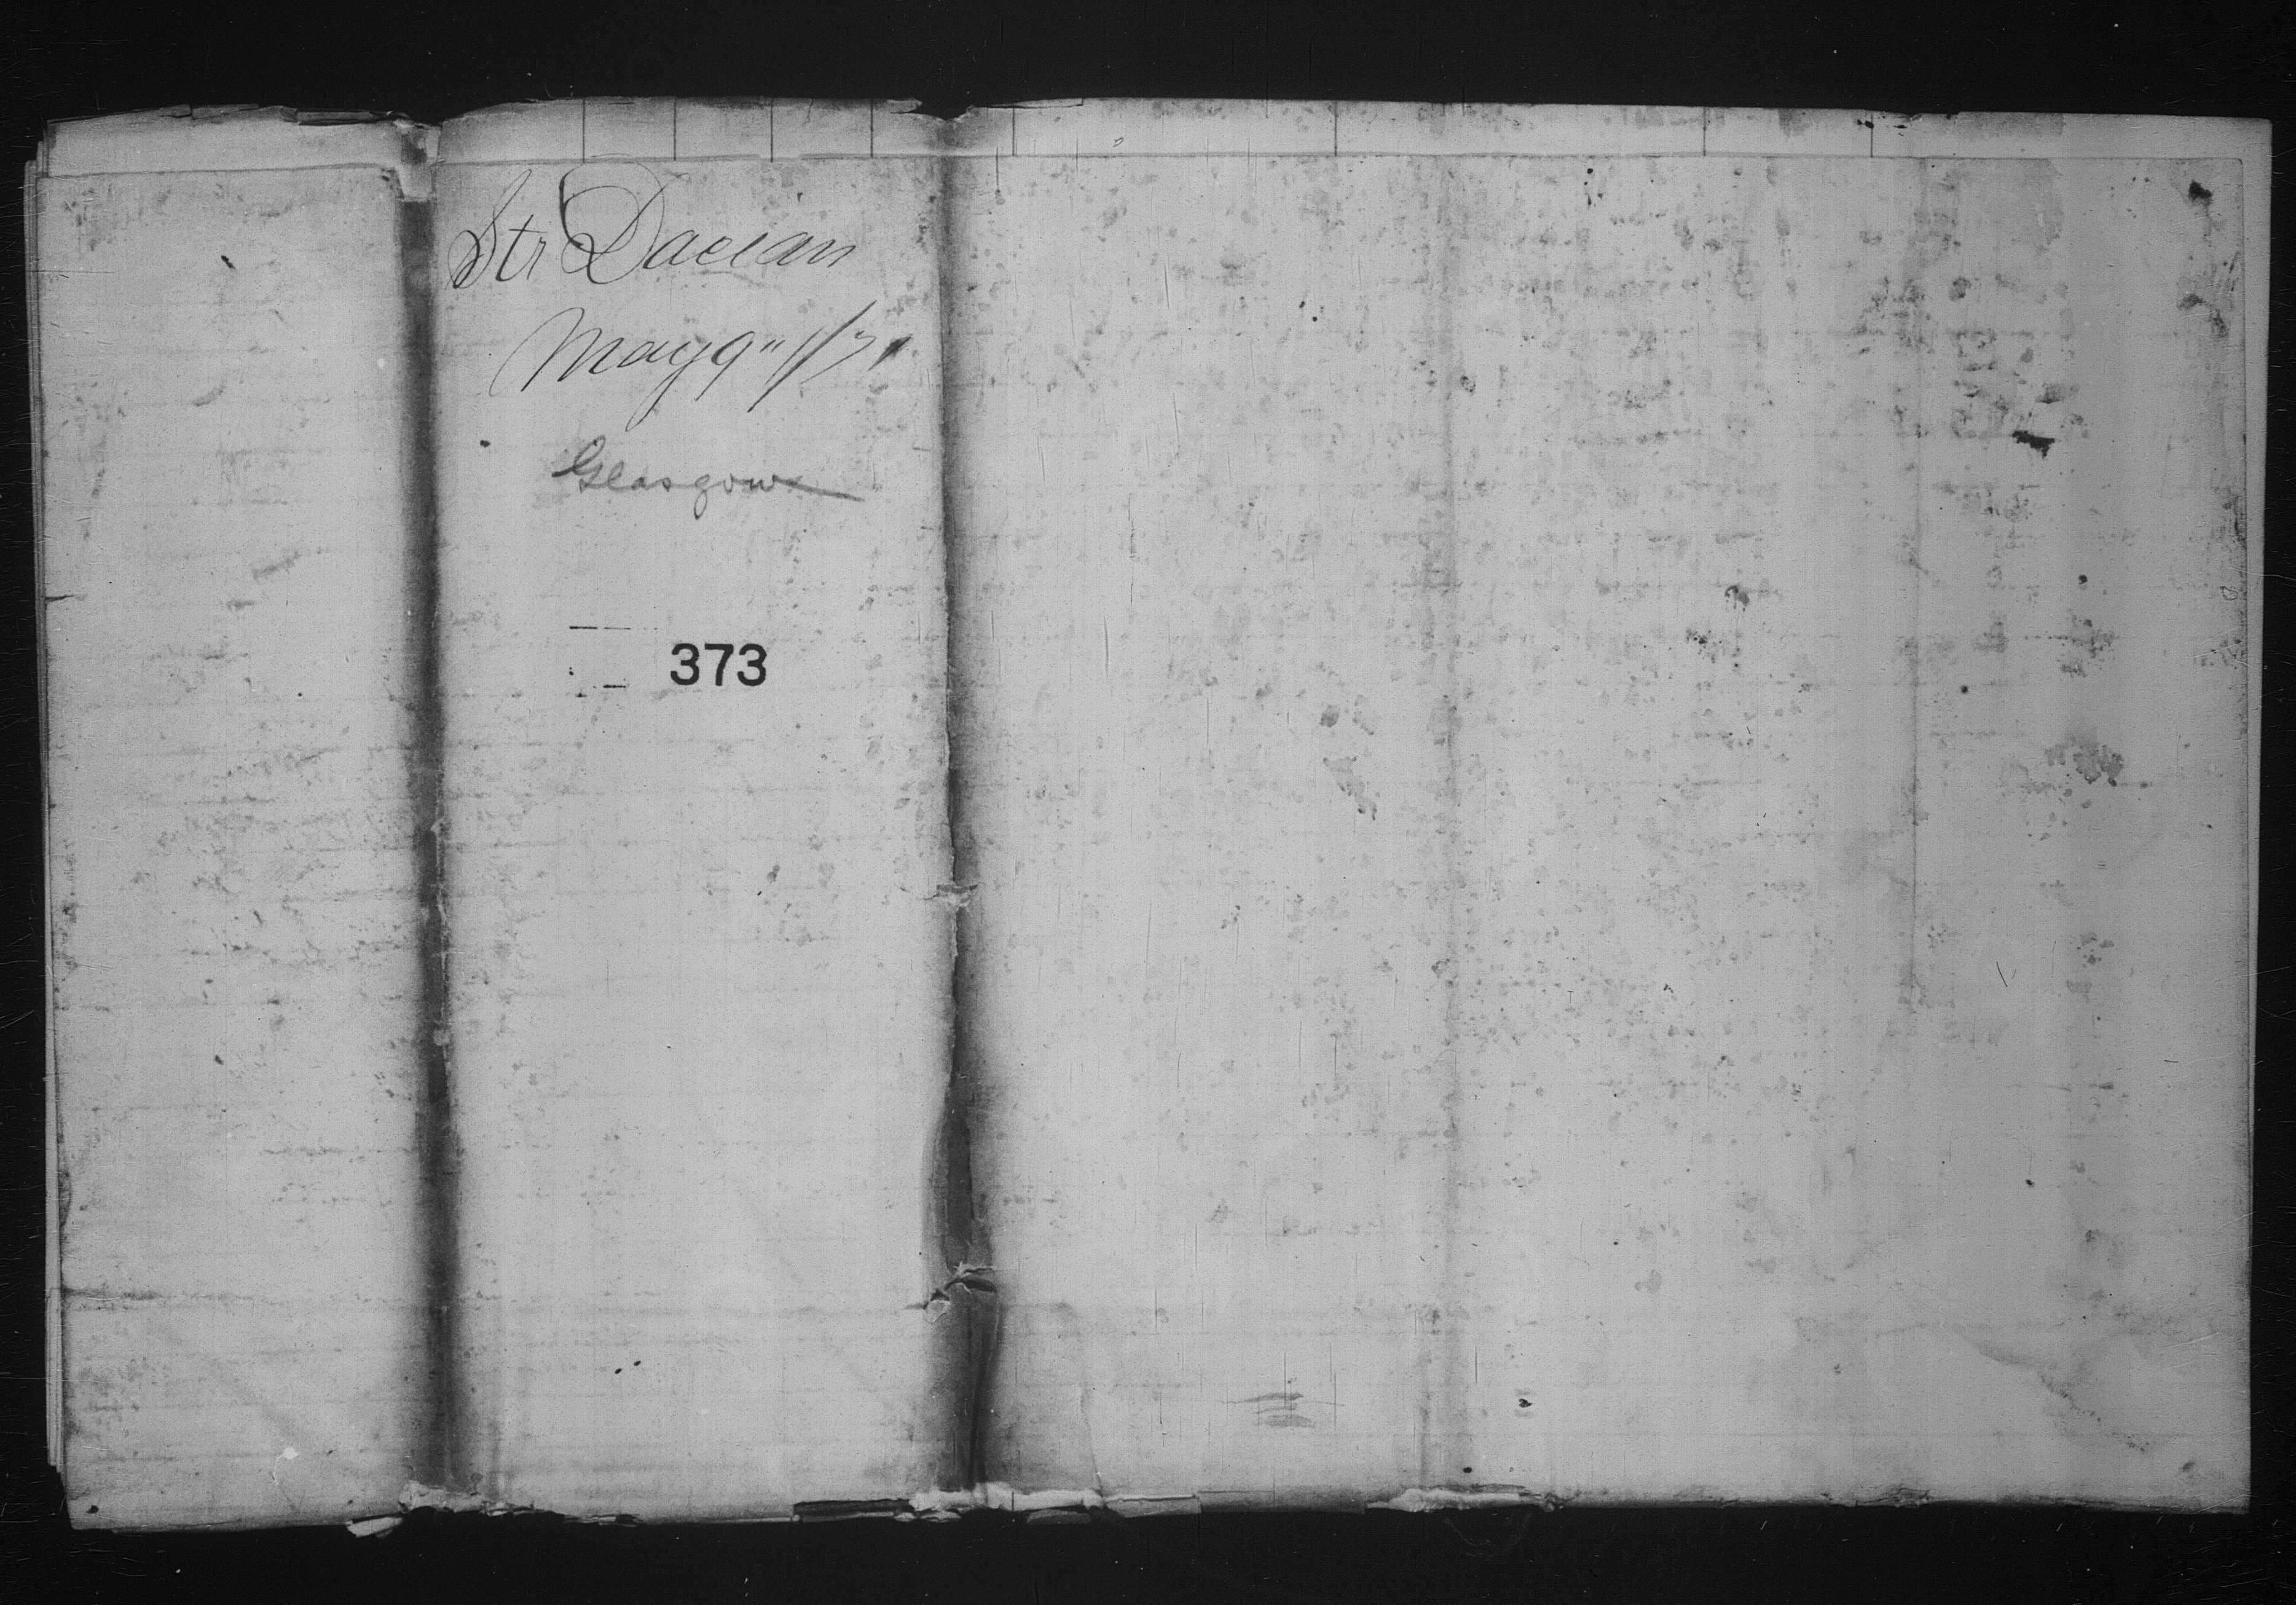 Str Dacian
May 9"/71
Glasgow
373